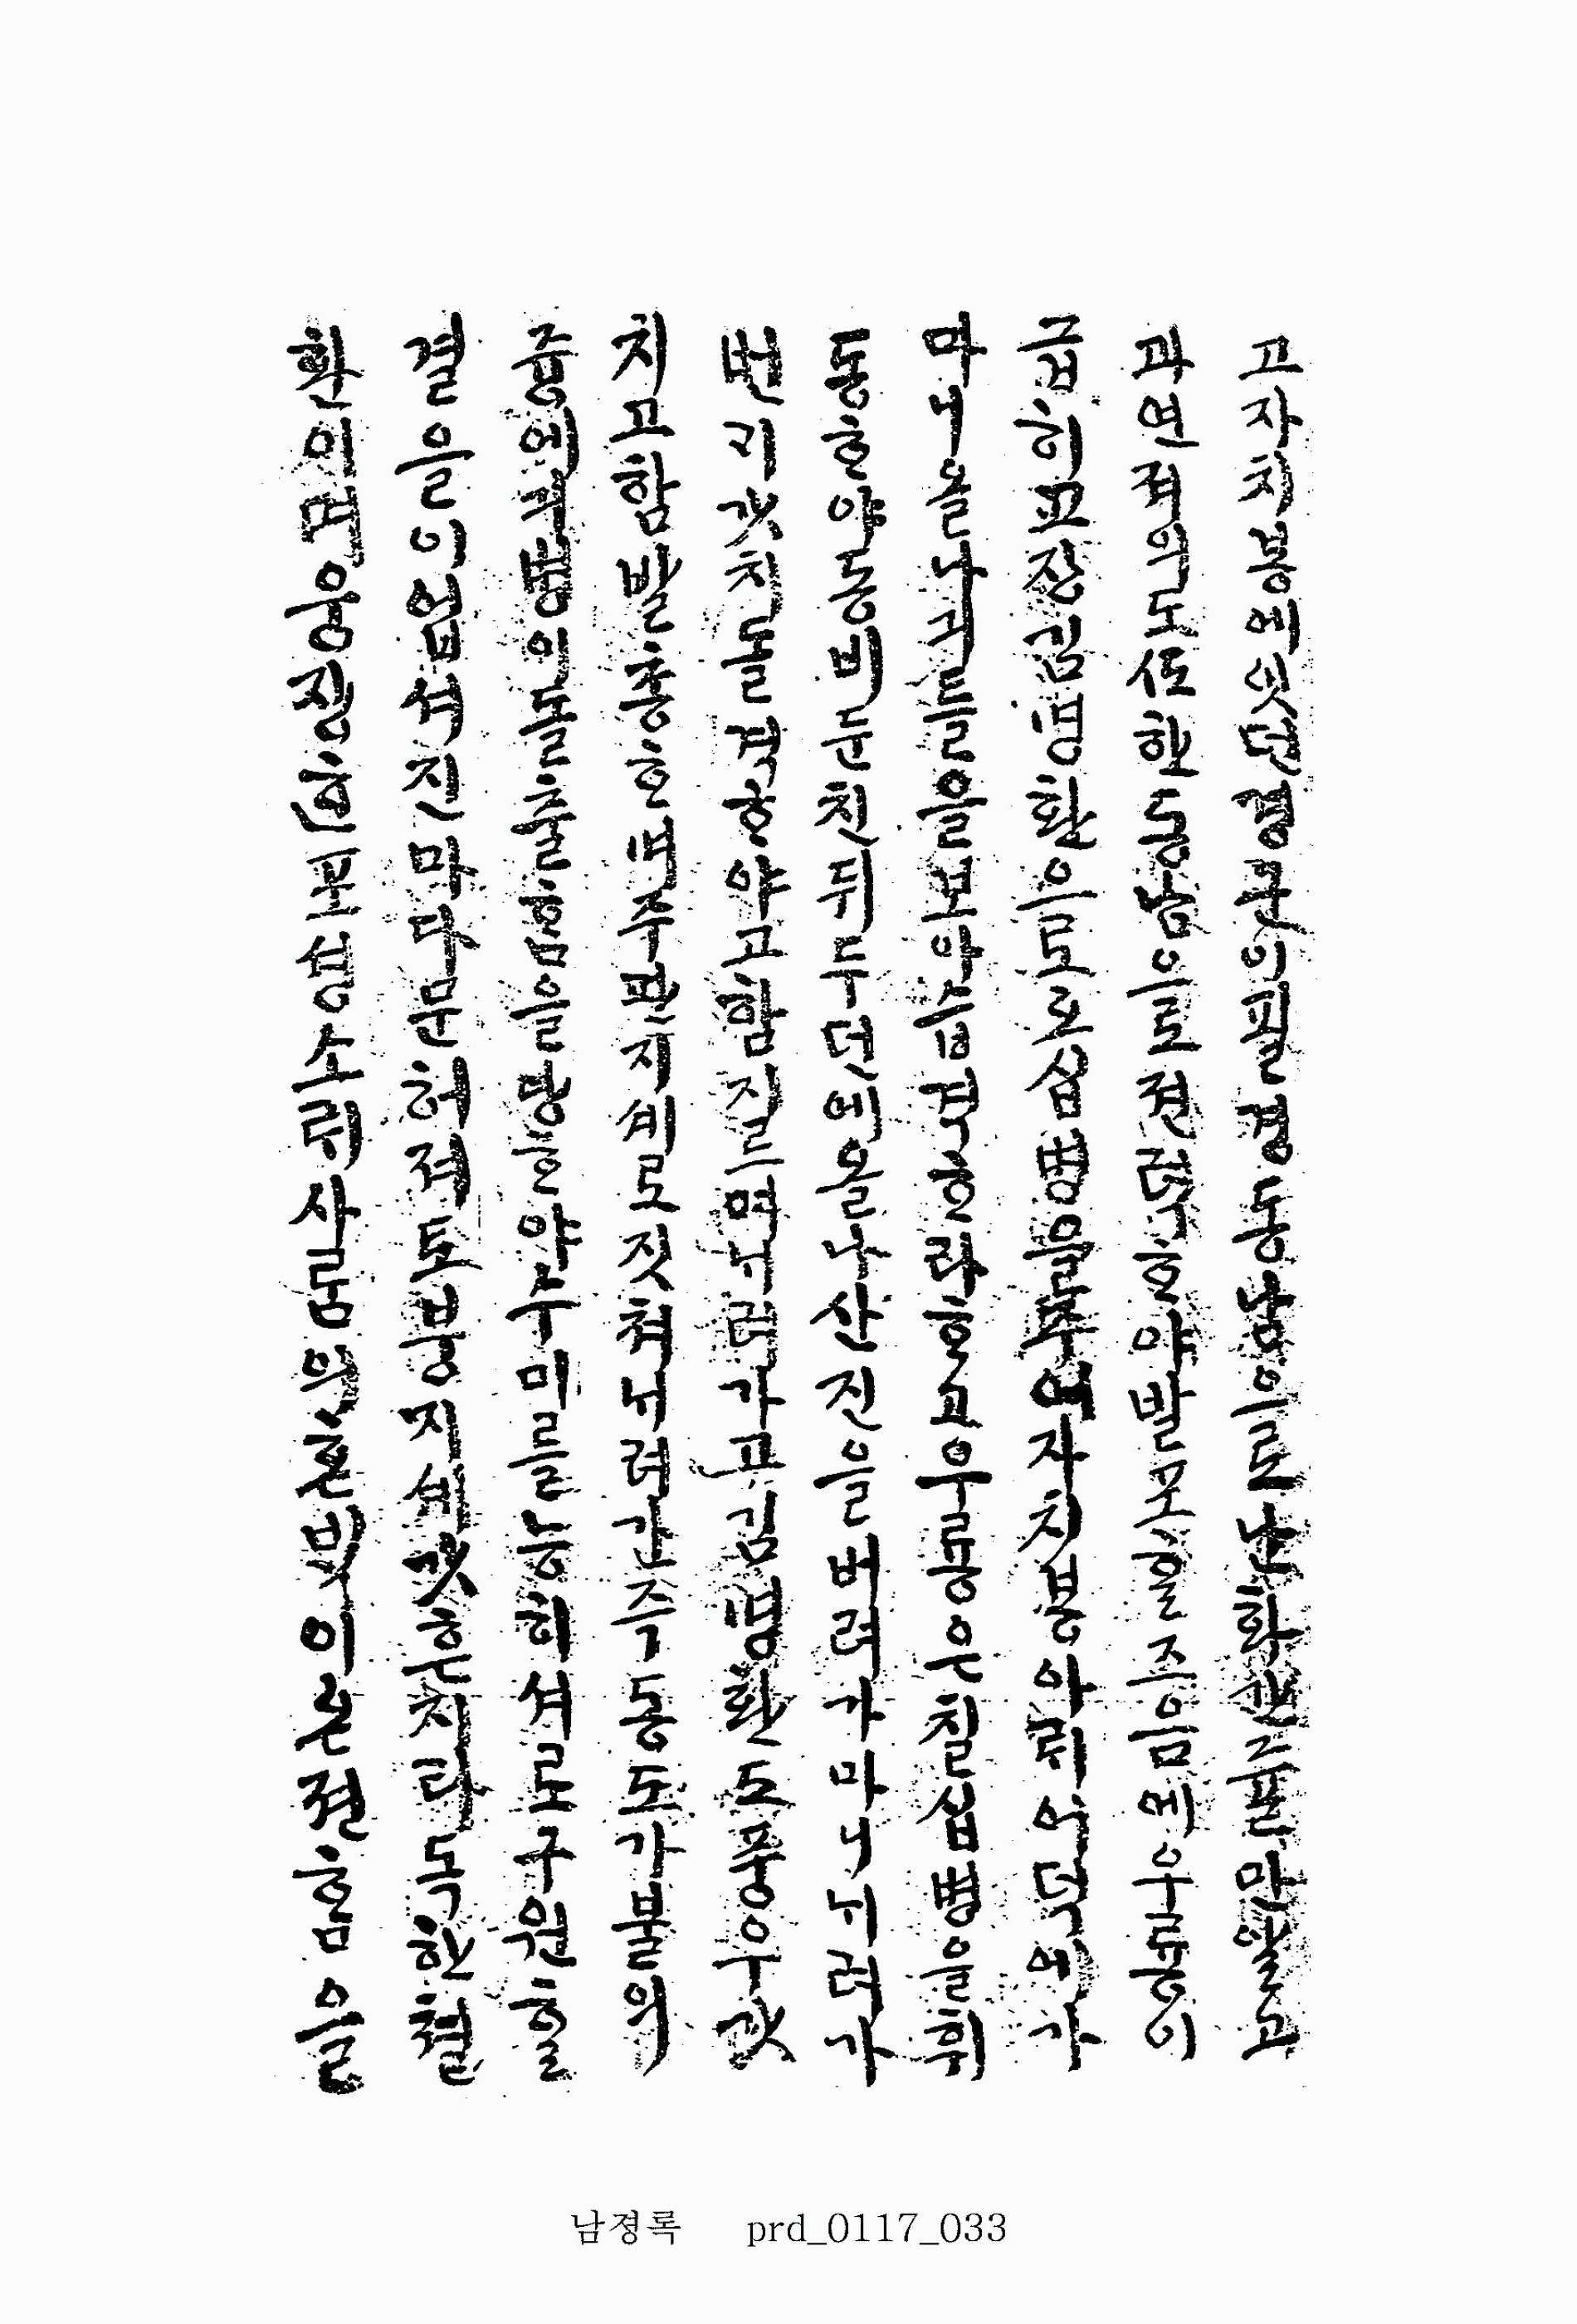 고자치봉에 잇던 경군이 필경 동남으로 난화 간 쥴만 알고
과연 젹의 도伍 한 동남으로 젼력ᄒᆞ야 발포ᄒᆞᆯ 즈음에 우룡이
급히 교쟝 김명환으로 ᄒᆞ 십병을 쥬어 자치봉 아ᄅᆡ 어덕에 가
마니 올나 긔틀을 보아 습격ᄒᆞ라 ᄒᆞ고 우룡은 칠십병을 휘
동ᄒᆞ야 동비 둔친 뒤 두던에 올나 산진을 버려 가마니 ᄂᆡ려가
번ᄀᆡ갓치 돌격ᄒᆞ야 고함 지르며 ᄂᆡ려가고 김명환도 풍우갓
치 고함 발총ᄒᆞ며 주판지셰로 짓쳐 ᄂᆡ려간즉 동도가 불의
즁에 긔병이 돌츌홈을 당ᄒᆞ야 수미를 능히 셔로 구원ᄒᆞᆯ
결을이 업셔 진마다 문허져 토붕지셰갓ᄒᆞᆫ지라 독한 철
환이며 웅장ᄒᆞᆫ 포셩 소ᄅᆡ 사ᄅᆞᆷ의 혼ᄇᆡᆨ이 ᄭᅳᆫ젿홈을
남졍록 prd_0117_033